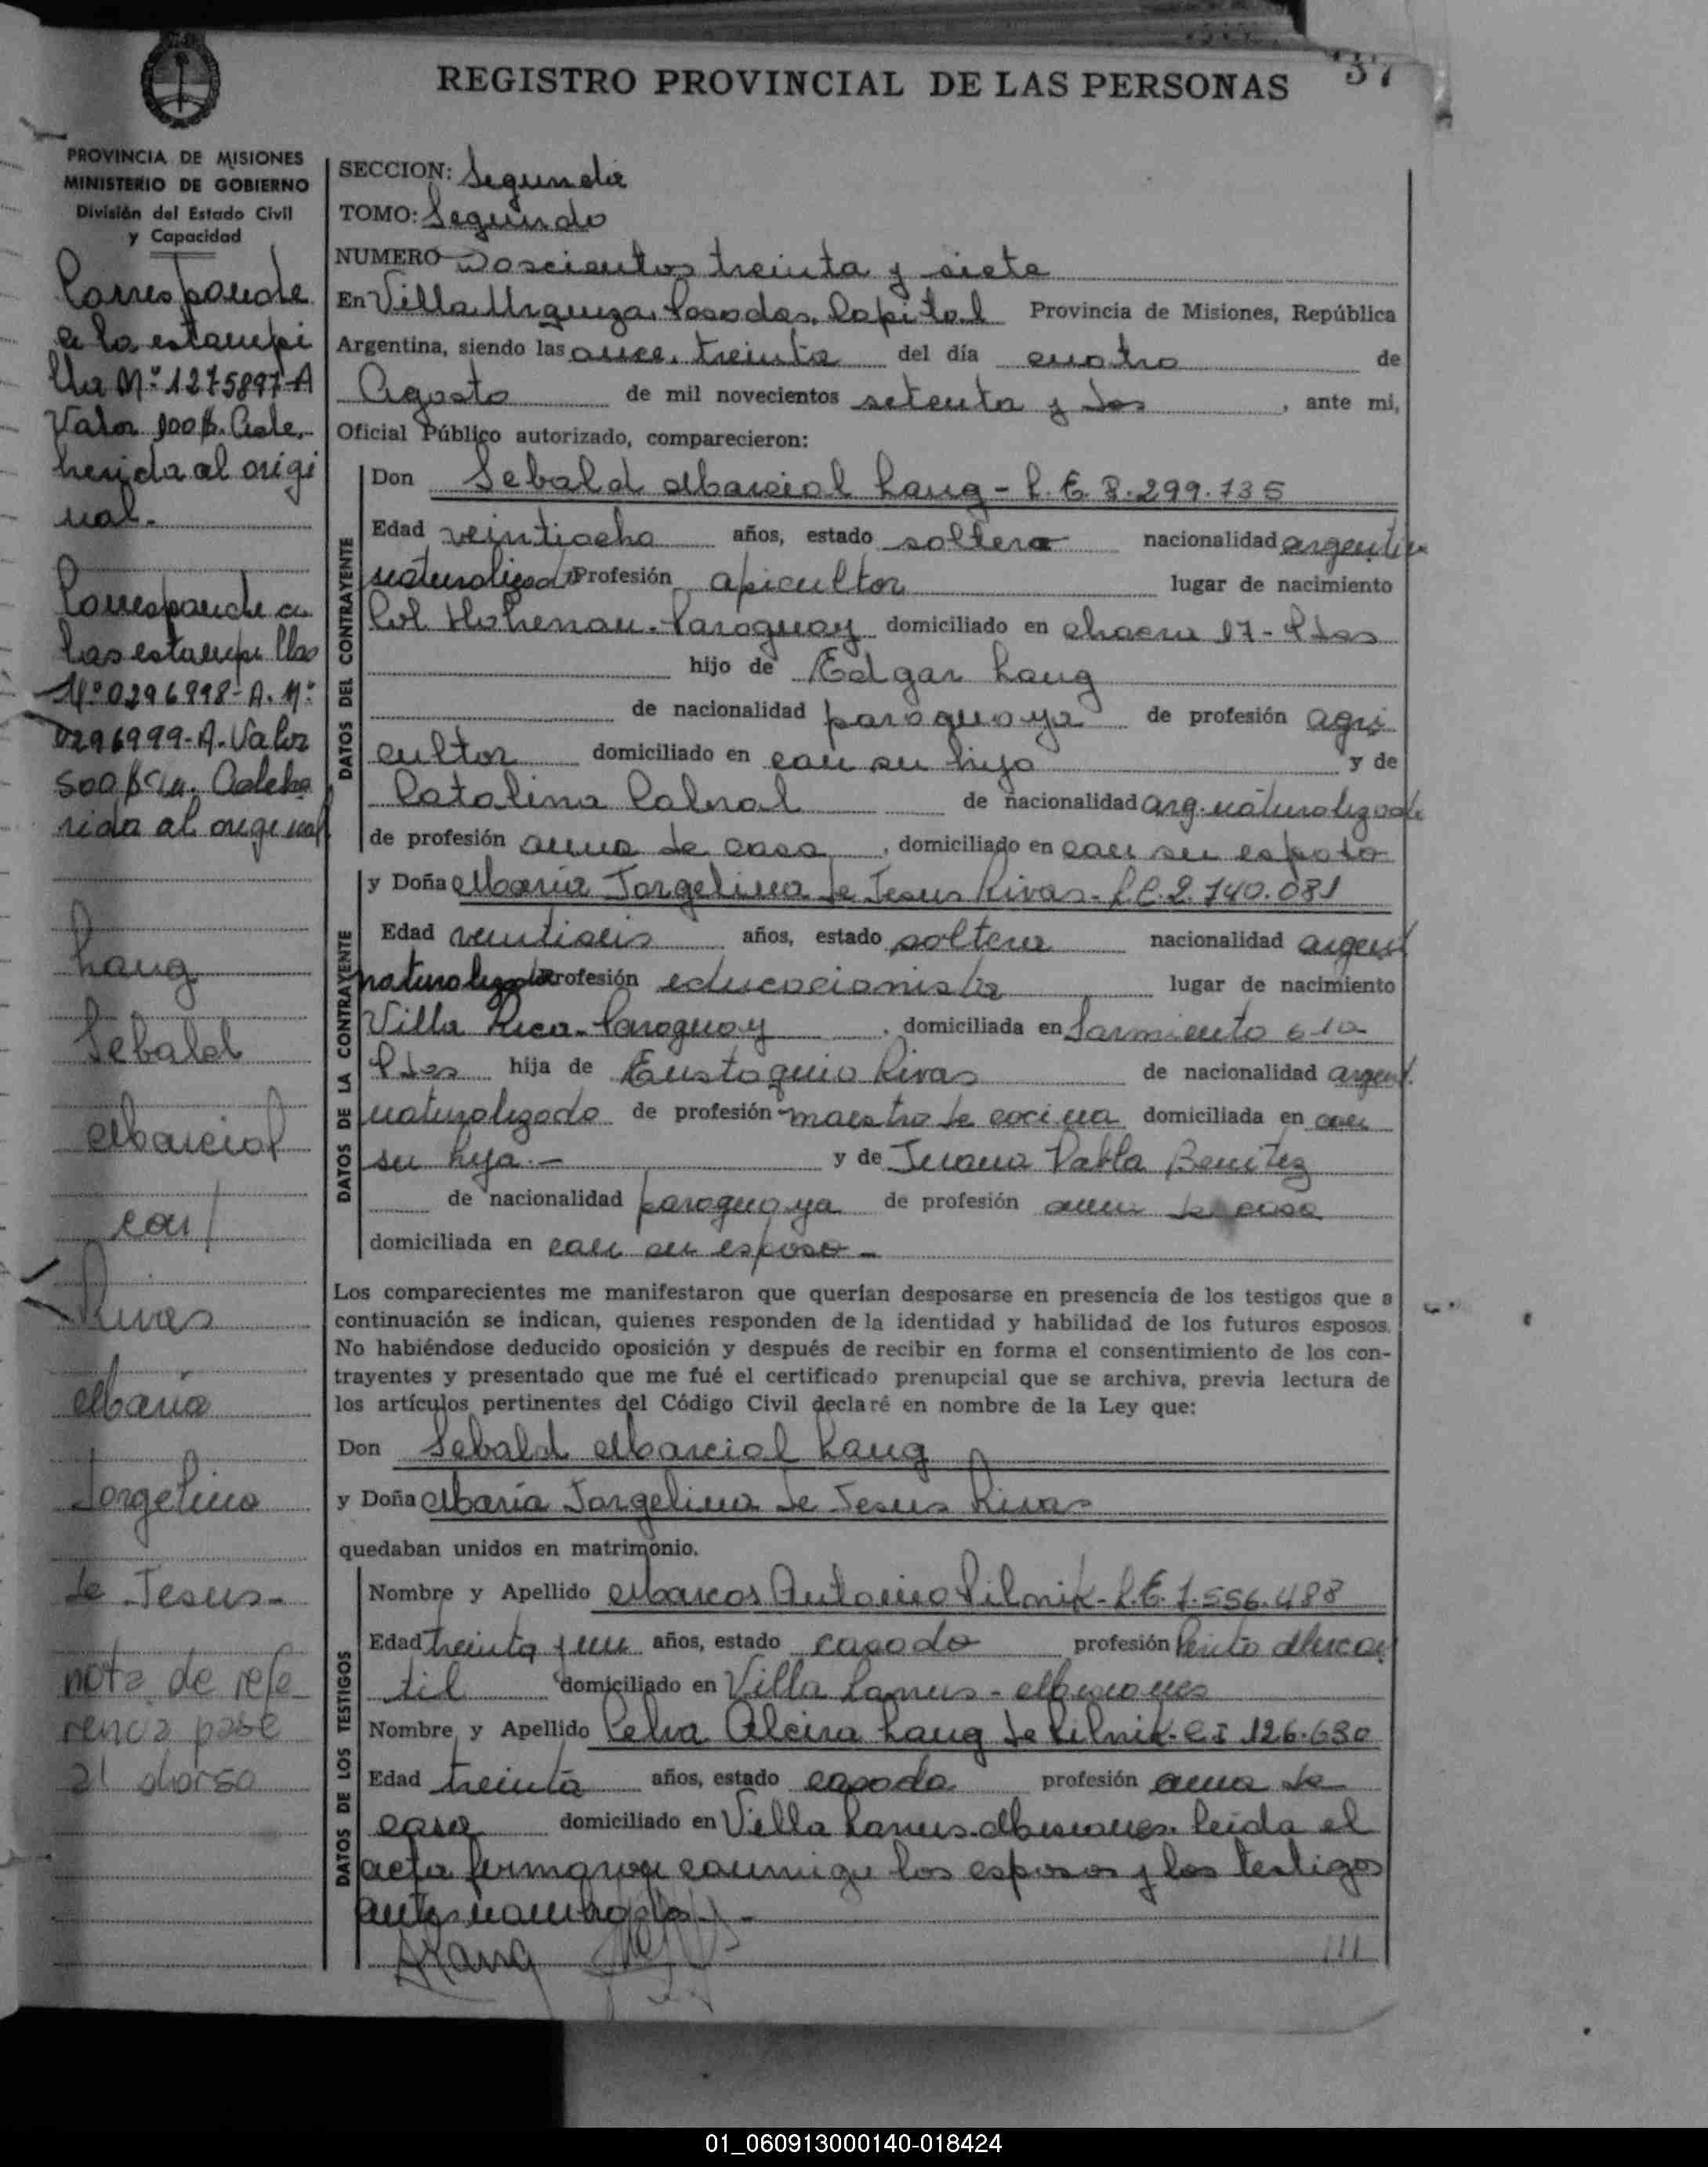 '37
REGISTRO PROVINCIAL DE LAS PERSONAS
PROVINCIA DE MISIONES
MINISTERIO DE GOBIERNO
División del Estado Civil
y Capacidad
Corresponde
a la estampi
lla Nº 1275897-A
Valor 100 $. Ade,
herida al origi
nal.-
Corresponde a
las estampillas
Nº 0296998-A. Nº
0296999-A. Valor
500 $ c/u. Adehe
rida al original
Laug
Sebald
Marcial
con/
Rivas
María
Jorgelina
de Jesus-
nota de refe
rencia pase
al dorso
SECCION: Segunda
TOMO: Segundo
NUMERO Doscientos treinta y siete
En Villa Urquiza, Posadas, Capital Provincia de Misiones, República
Argentina, siendo las once, treinta del día cuatro de
Agosto de mil novecientos setenta y dos, ante mi,
Oficial Público autorizado, comparecieron:
DATOS DEL CONTRAYENTE
Don Sebald Marcial Laug - L.E. 8.299.735
Edad veintiocho años, estado soltero nacionalidad argentin
naturalizado Profesión apicultor lugar de nacimiento
Col Hohenau. Paraguay domiciliado en chacra 17 - Pdas
hijo de Edgar Laug
de nacionalidad paraguaya de profesión agri
cultor domiciliado en con su hijo y de
Catalina Cabral de nacionalidad arg. naturalizada
de profesión ama de casa, domiciliado en con su esposo
DATOS DE LA CONTRAYENTE
y Doña María Jorgelina de Jesus Rivas - L.C. 2.740.081
Edad ventiseis años, estado soltera nacionalidad argent
naturalizada Profesión educacionista lugar de nacimiento
Villa Rica - Paraguay, domiciliada en Sarmiento 610
Pdas hija de Eustaquio Rivas de nacionalidad argent.
naturalizado de profesión maestro de cocina domiciliada en con
su hija.- y de Juana Pabla Benitez
de nacionalidad paraguaya de profesión ama de casa
domiciliada en con su esposo -
Los comparecientes me manifestaron que querían desposarse en presencia de los testigos que a
continuación se indican, quienes responden de la identidad y habilidad de los futuros esposos.
No habiéndose deducido oposición y después de recibir en forma el consentimiento de los con-
trayentes y presentado que me fué el certificado prenupcial que se archiva, previa lectura de
los artículos pertinentes del Código Civil declaré en nombre de la Ley que:
Don Sebald Marcial Laug
y Doña María Jorgelina de Jesus Rivas
quedaban unidos en matrimonio.
DATOS DE LOS TESTIGOS
Nombre y Apellido Marcos Antonio Pilnik - L.E. 7.556.488
Edad treinta y un años, estado casado profesión Perito Mercan
til domiciliado en Villa Lanus - Misiones
Nombre y Apellido Pelva Alcira Laug de Pilnik - C.I 126.630
Edad treinta años, estado casada profesión ama de
casa domiciliado en Villa Lanus. Misiones. Leida el
acta firmaron conmigo los esposos y los testigos
antes nombrados.-
SLaug
///
01_060913000140-018424